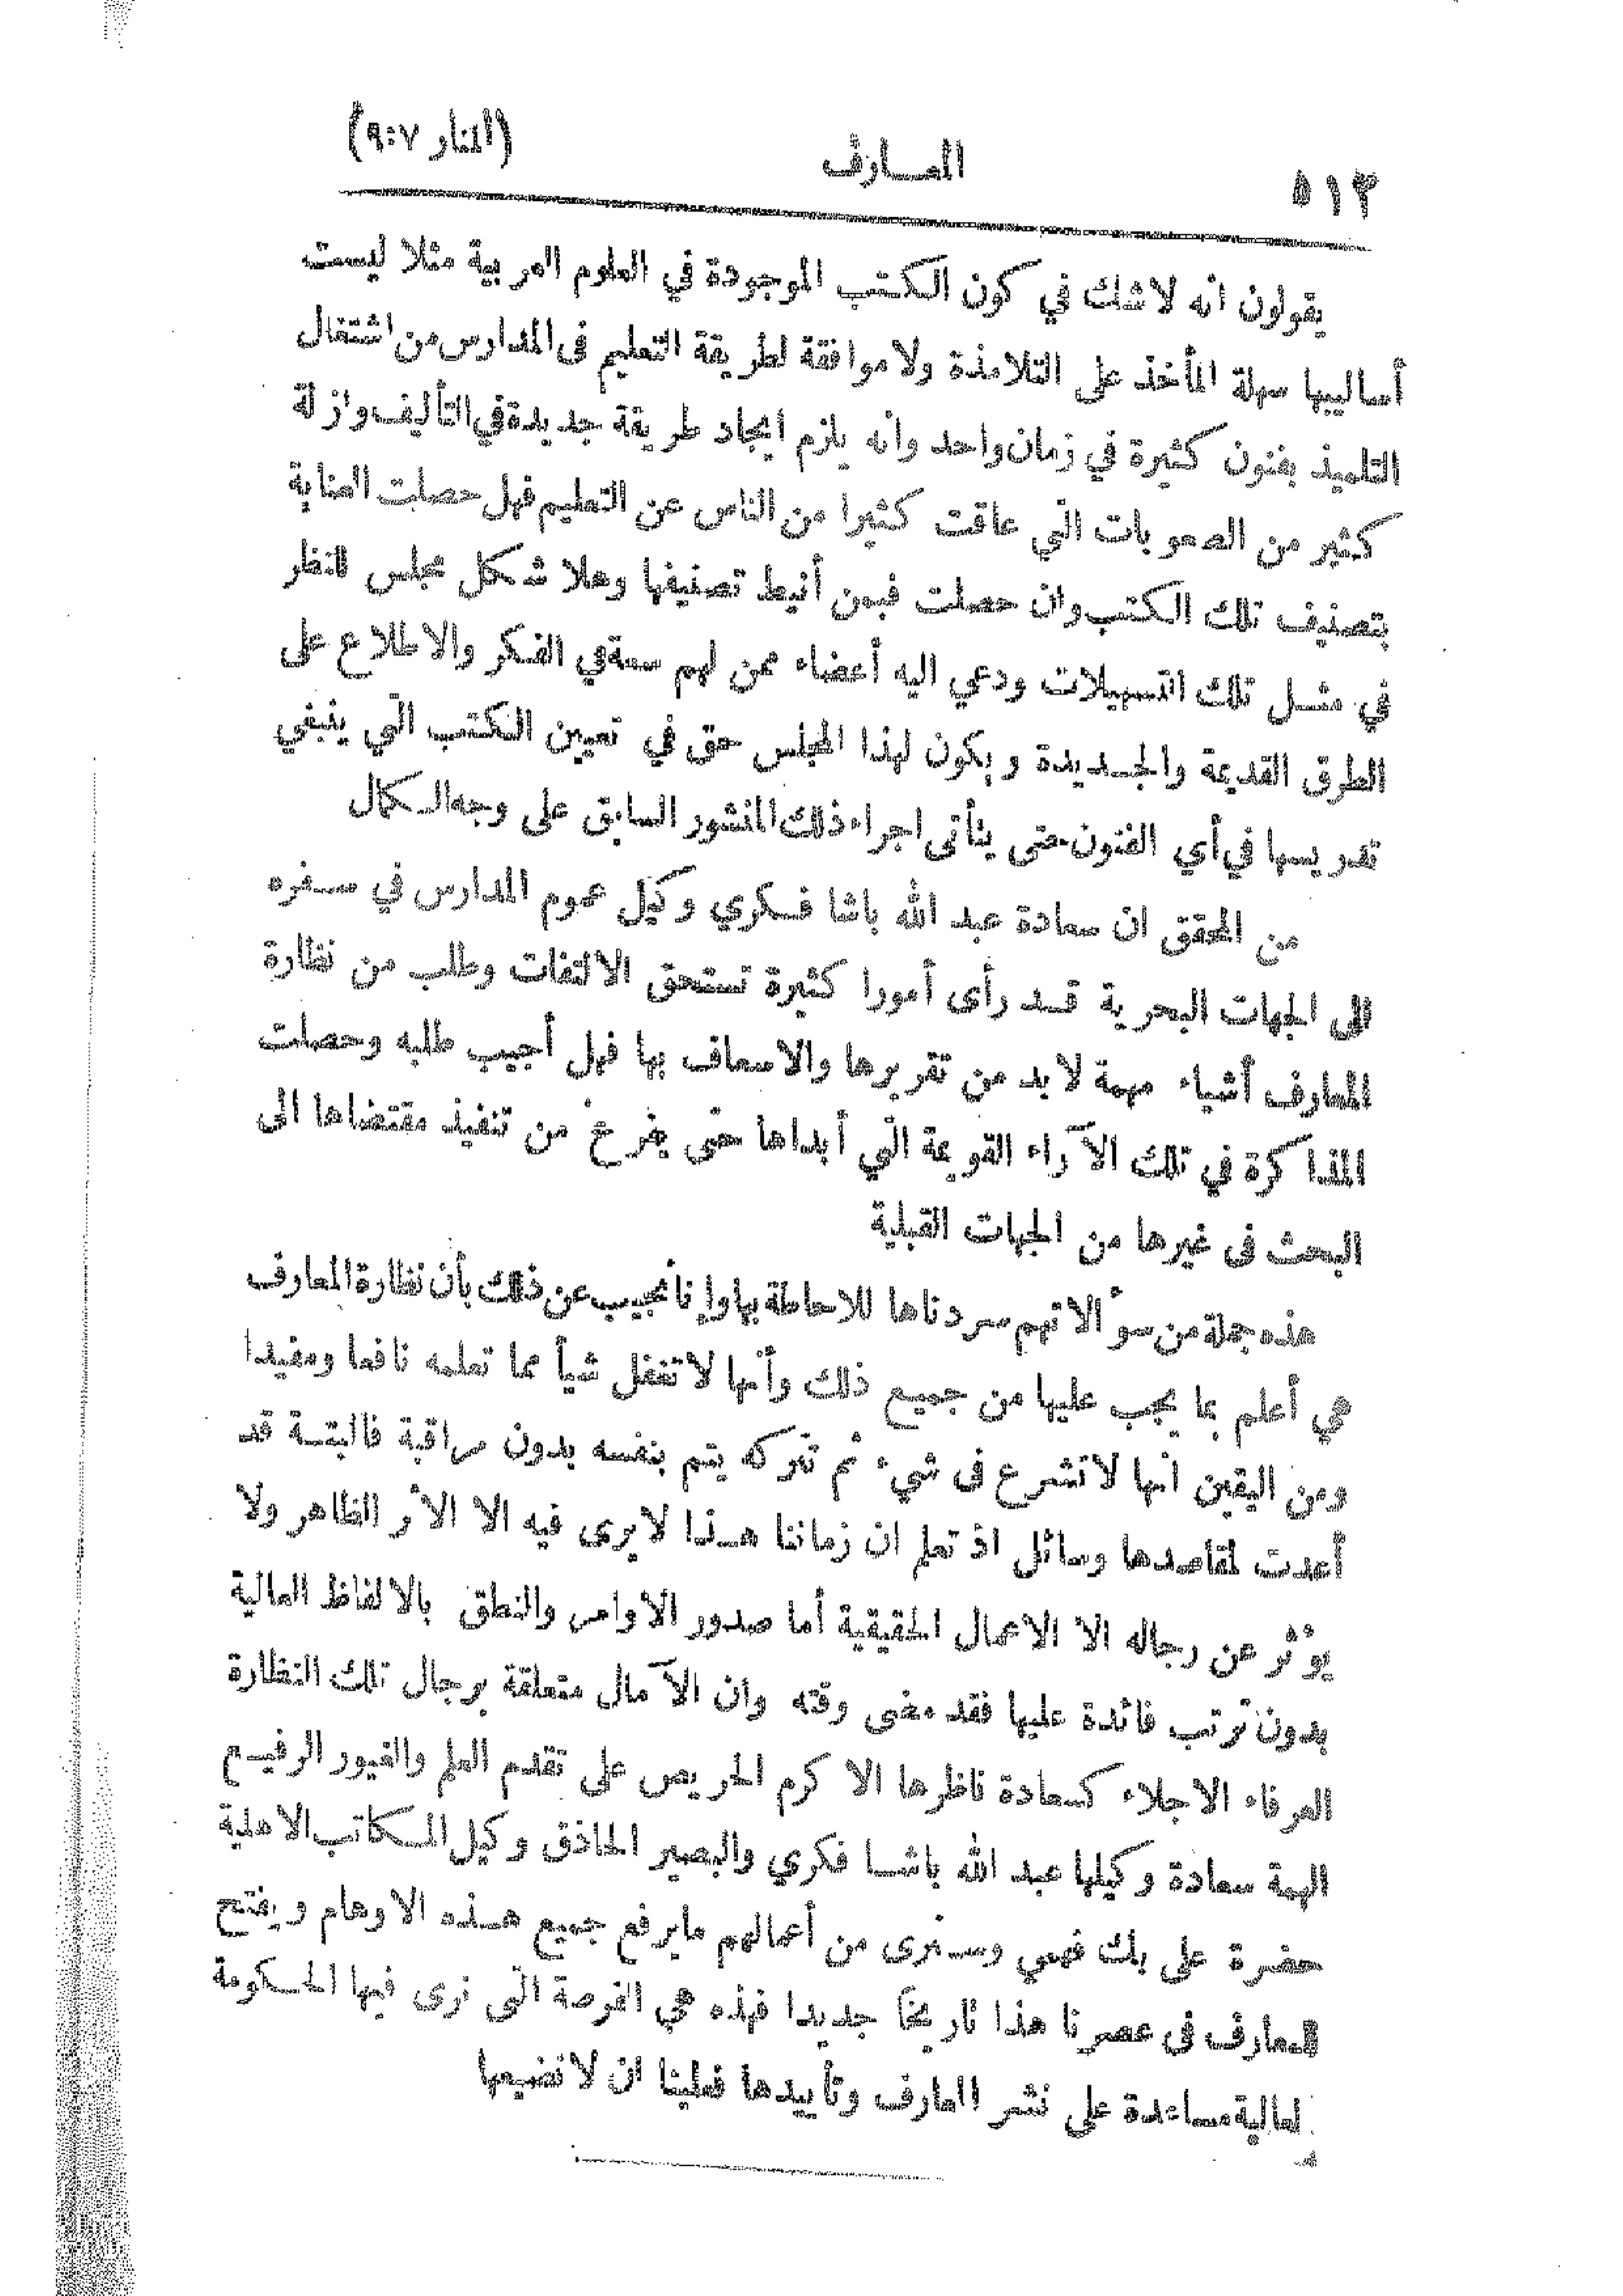 ٥١٢ المعارف (المنار ٩:٧)
يقولون انه لاشك في كون الكتب الموجودة في العلوم العربية مثلا ليست
أساليبها سهلة المأخذ على التلامذة ولا موافقة لطريقة التعليم فى المدارس من اشتغال
التلميذ بفنون كثيرة في زمان واحد وانه يلزم ايجاد طريقة جديدة في التأليف وازلة
كثير من الصعوبات التي عاقت كثيرا من الناس عن التعليم فهل حصلت العناية
بتصنيف تلك الكتب وان حصلت فبمن أنيط تصنيفها وهلا شكل مجلس للنظر
في مثل تلك التسهيلات ودعي اليه أعضاء ممن لهم سعة في الفكر والاطلاع على
الطرق القديمة والجديدة ويكون لهذا المجلس حق في تعيين الكتب التي ينبغي
تدريسها في أي الفنون حتى يتأتى اجراء ذلك المنشور السابق على وجه الكمال
من المحقق ان سعادة عبد الله باشا فكري وكيل عموم المدارس في سفره
الى الجهات البحرية قد رأى أمورا كثيرة تستحق الالتفات وطلب من نظارة
المعارف أشياء مهمة لابد من تقريرها والاسعاف بها فهل أجيب طلبه وحصلت
المذاكرة في تلك الآراء القويمة التي أبداها حتى يفرغ من تنفيذ مقتضاها الى
البحث فى غيرها من الجهات القبلية
هذه جملة من سؤالاتهم سردناها للاحاطة بها وإنا نجيب عن ذلك بأن نظارة المعارف
هي أعلم بما يجب عليها من جميع ذلك وأنها لاتغفل شيأ مما تعلمه نافعا ومفيدا
ومن اليقين انها لاتشرع فى شيء ثم تتركه يتم بنفسه بدون مراقبة فالبتة قد
أعدت لمقاصدها وسائل اذ تعلم ان زماننا هذا لايرى فيه الا الأثر الظاهر ولا
يؤثر عن رجاله الا الاعمال الحقيقية أما صدور الاوامر والنطق بالالفاظ العالية
بدون ترتب فائدة عليها فقد مضى وقته وان الآمال متعلقة برجال تلك النظارة
العرفاء الاجلاء كسعادة ناظرها الاكرم الحريص على تقدم العلم والغيور الرفيع
الهمة سعادة وكيلها عبد الله باشا فكري والبصير الحاذق وكيل المكاتب الاهلية
حضرة على بك فهمي وسنرى من أعمالهم مايرفع جميع هذه الاوهام ويفتح
للمعارف فى عصرنا هذا تاريخاً جديدا فهذه هي الفرصة التى نرى فيها الحكومة
لعالية مساعدة على نشر المعارف وتأييدها فعلينا ان لانضيعها